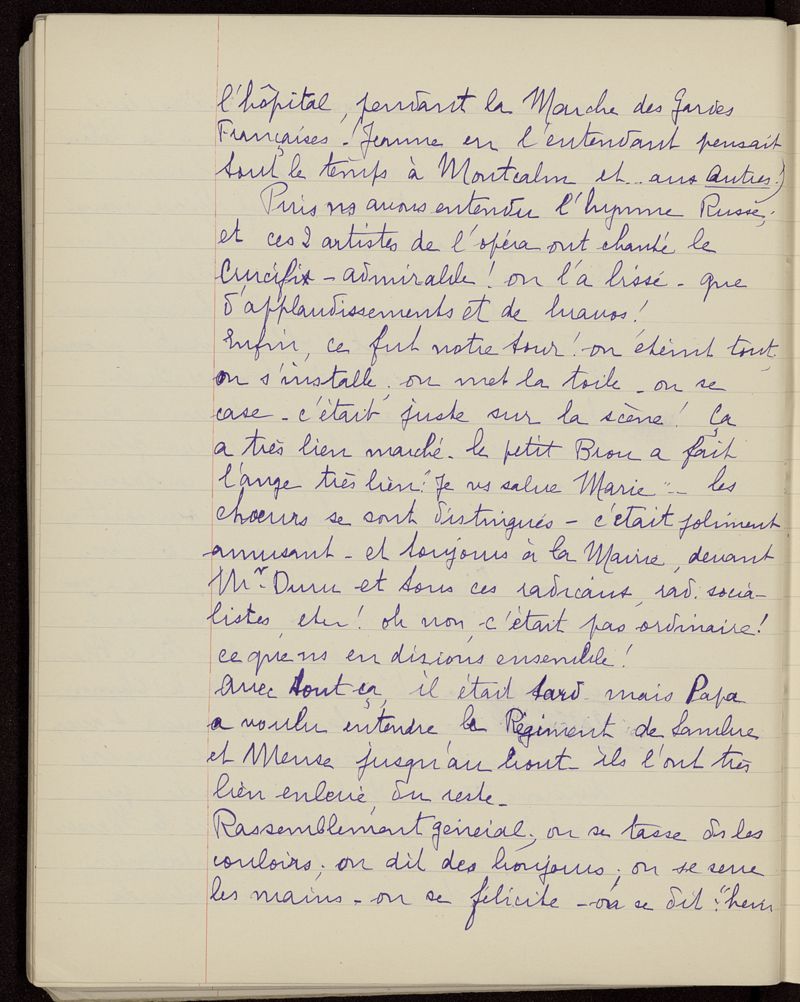 l'hôpital, pendant la Marche des Gardes
Françaises. Jeanne en l'entendant pensait
tout le temps à Montcalm et.. aux autres!)
Puis ns avons entendu l'hymne Russe;
et ces 2 artistes de l'opéra ont chanté le
Crucifix - admirable! on l'a bissé - que
d'applaudissements et de bravos!
Enfin, ce fut notre tour! on éteint tout,
on s'installe, on met la toile - on se
case - c'était juste sur la scène! Ça
a très bien marché - le petit Brou a fait
l'ange très bien: "Je vs salue Marie" - les
choeurs se sont distingués - c'était joliment
amusant - et toujours à la Mairie, devant
Mr. Duru et tous ces radicaux, rad. socia-
listes, etc! oh non, c'était pas ordinaire!
ce que ns en disions ensemble!
Avec tout ça, il était tard mais Papa
a voulu entendre le Régiment de Sambre
et Meuse jusqu'au bout - ils l'ont très
bien enlevé, du reste -
Rassemblement général; on se tasse ds les
couloirs; on dit des bonjours; on se serre
les mains - on se félicite - on se dit: "